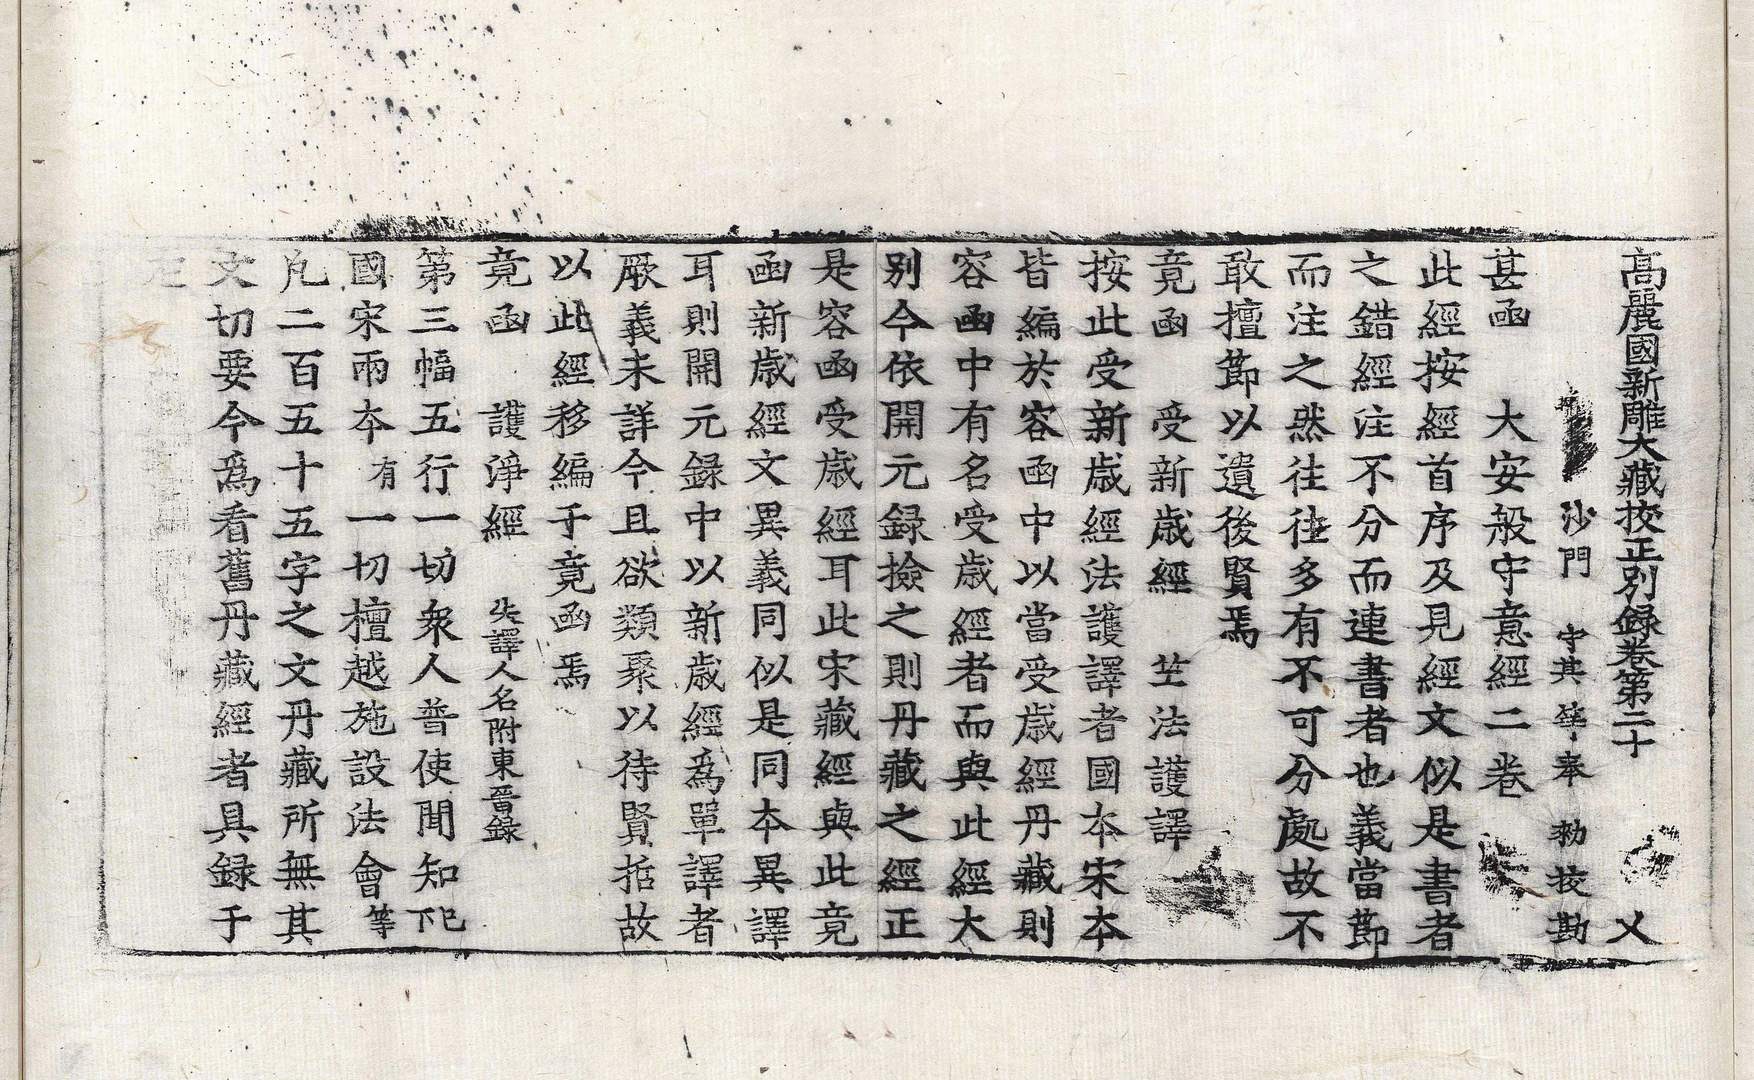 高麗國新雕大藏校正別録卷第二十 乂
沙門 守其 等奉 勑校勘
甚函 大安般守意經二卷
此經按經首序及見經文似是書者
之錯經注不分而連書者也義當節
而注之然往往多有不可分處故不
敢擅節以遺後賢焉
竟函 受新歳經 竺法護譯
按此受新歳經法護譯者國本宋本
皆編於容函中以當受歳經丹藏則
容函中有名受歳經者而與此經大
別今依開元録撿之則丹藏之經正
是容函受歳經耳此宋藏經與此竟
函新歳經文異義同似是同本異譯
耳則開元録中以新歳經爲單譯者
厥義未詳今且欲類聚以待賢哲故
以此經移編于竟函焉
竟函 護淨經 失譯人名附東晉録
第三幅五行一切衆人普使聞知下
國宋兩本有一切檀越施設法會等
凡二百五十五字之文丹藏所無其
文切要今爲看舊丹藏經者具録于